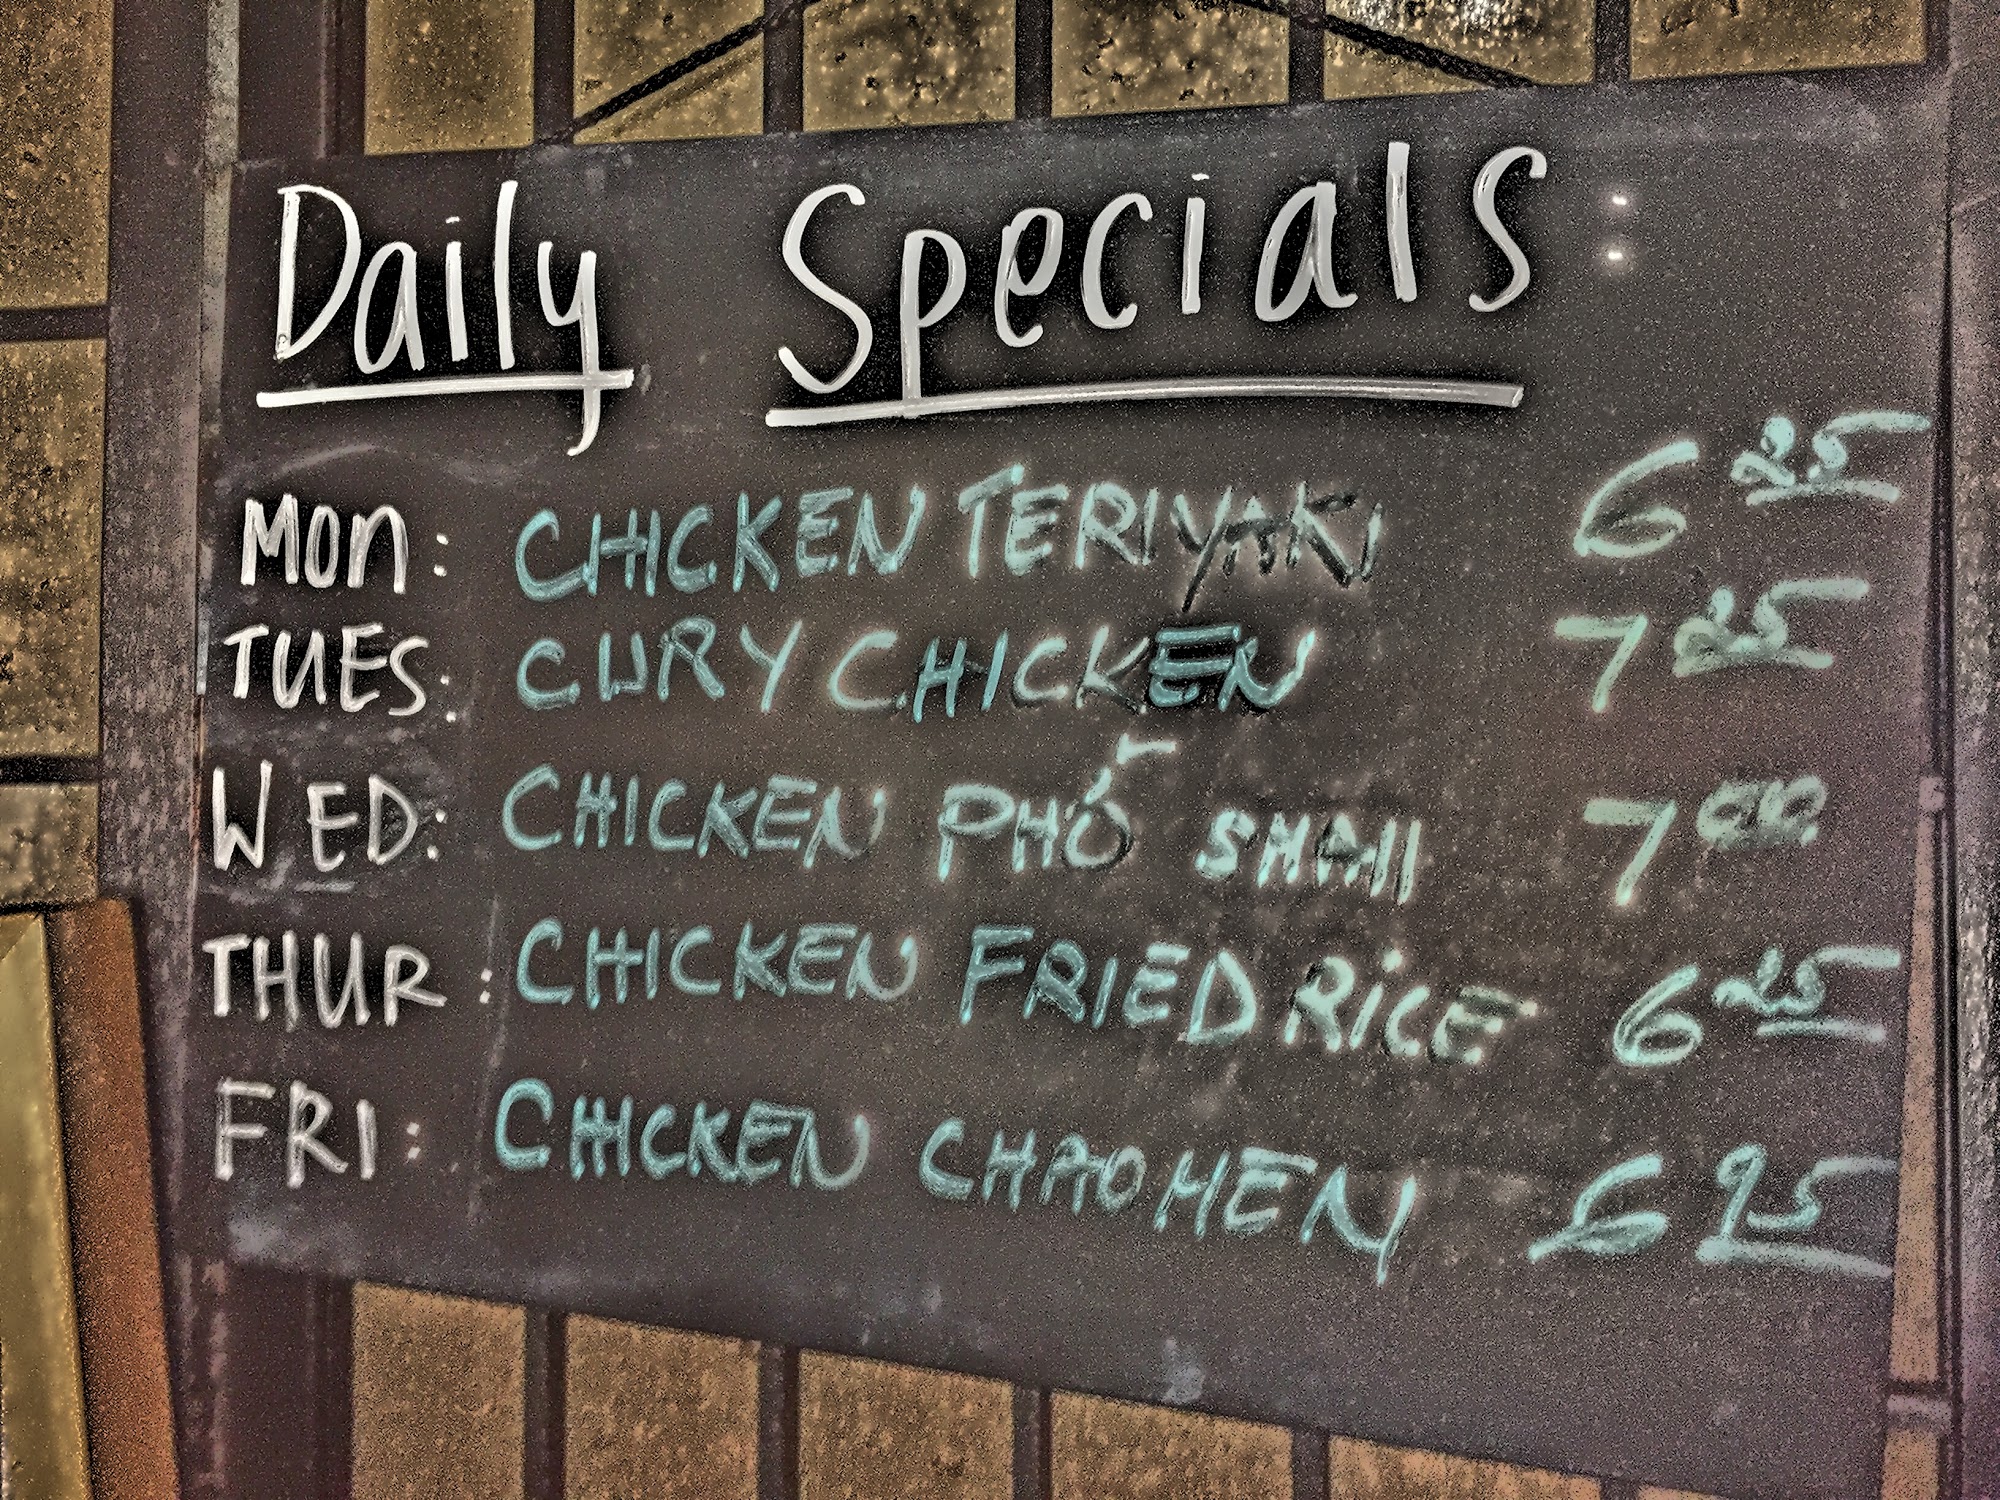 Daily Specials:
MON: CHICKEN TERIYAKI 6 25
TUES: CURY CHICKEN 7 25
WED: CHICKEN PHỞ SMAll 7 00
THUR: CHICKEN FRIED RiCE 6 25
FRI: CHICKEN CHAO MEN 6 95